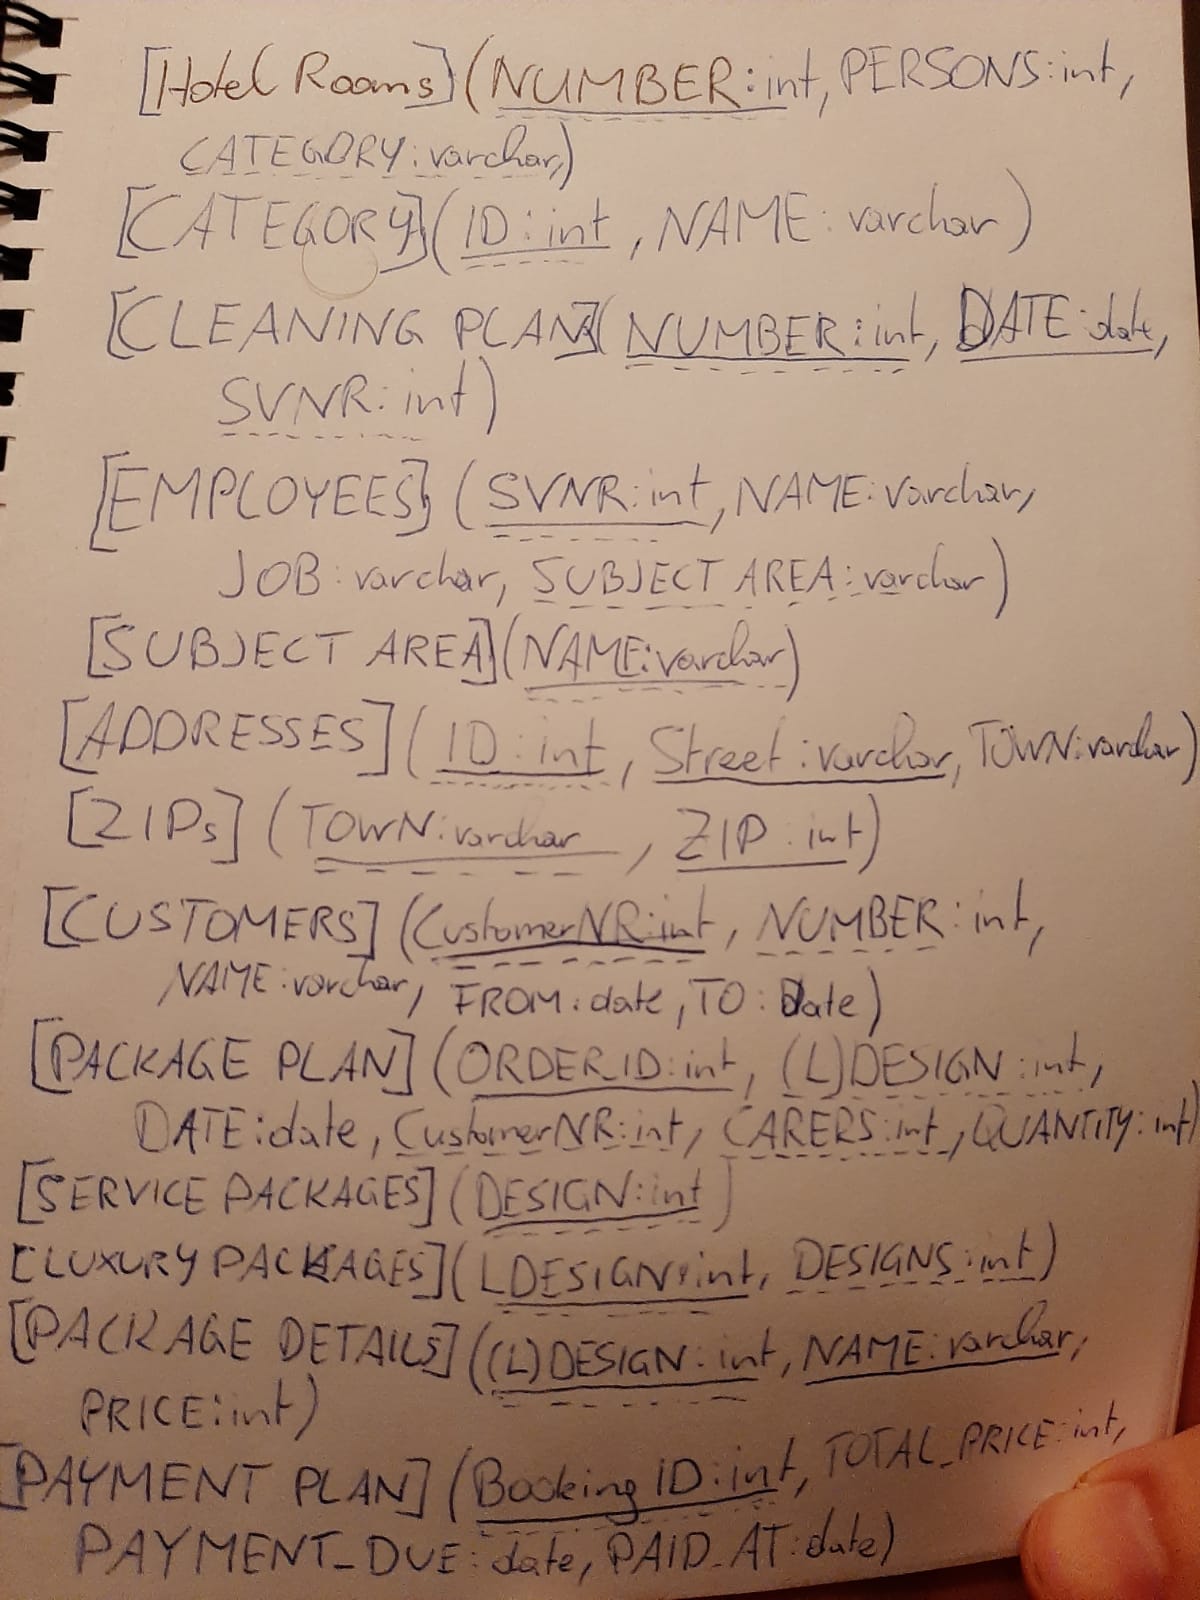 [Hotel Rooms](NUMBER:int, PERSONS:int,
CATEGORY:varchar,)
[CATEGORY](ID:int, NAME:varchar)
[CLEANING PLAN](NUMBER:int, DATE:date,
SVNR:int)
[EMPLOYEES](SVNR:int, NAME:varchar,
JOB:varchar, SUBJECT AREA:varchar)
[SUBJECT AREA](NAME:varchar)
[ADDRESSES](ID:int, Street:varchar, TOWN:varchar)
[ZIPs](TOWN:varchar, ZIP:int)
[CUSTOMERS](CustomerNR:int, NUMBER:int,
NAME:varchar, FROM:date, TO:Date)
[PACKAGE PLAN](ORDER_ID:int, (L)DESIGN:int,
DATE:date, CustomerNR:int, CARERS:int, QUANTITY:int)
[SERVICE PACKAGES](DESIGN:int)
[LUXURY PACKAGES](LDESIGN:int, DESIGNS:int)
[PACKAGE DETAILS]((L)DESIGN:int, NAME:varchar,
PRICE:int)
[PAYMENT PLAN](Booking ID:int, TOTAL_PRICE:int,
PAYMENT_DUE:date, PAID_AT:date)